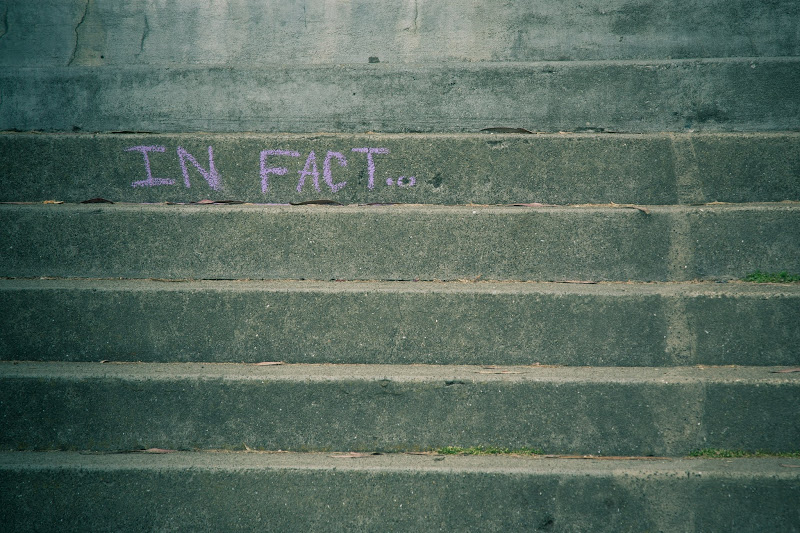 IN FACT...